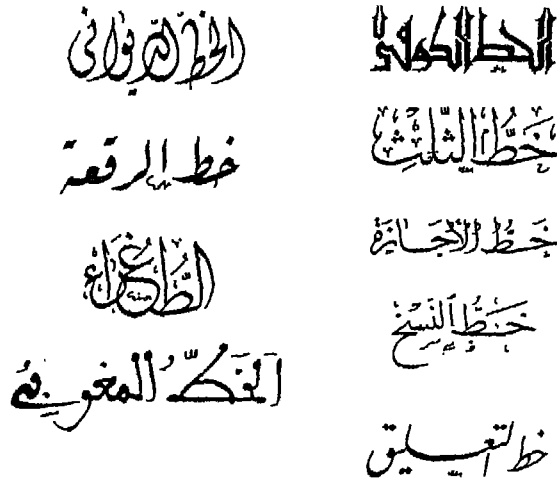 الخط الكوفي
خَطُّ الثُّلُثِ
خَطُّ الإجَازَة
خَطُّ النَّسْخ
خط التعليق
الخط الديواني
خط الرقعة
الطُّغْرَاء
الخطّ المغربي